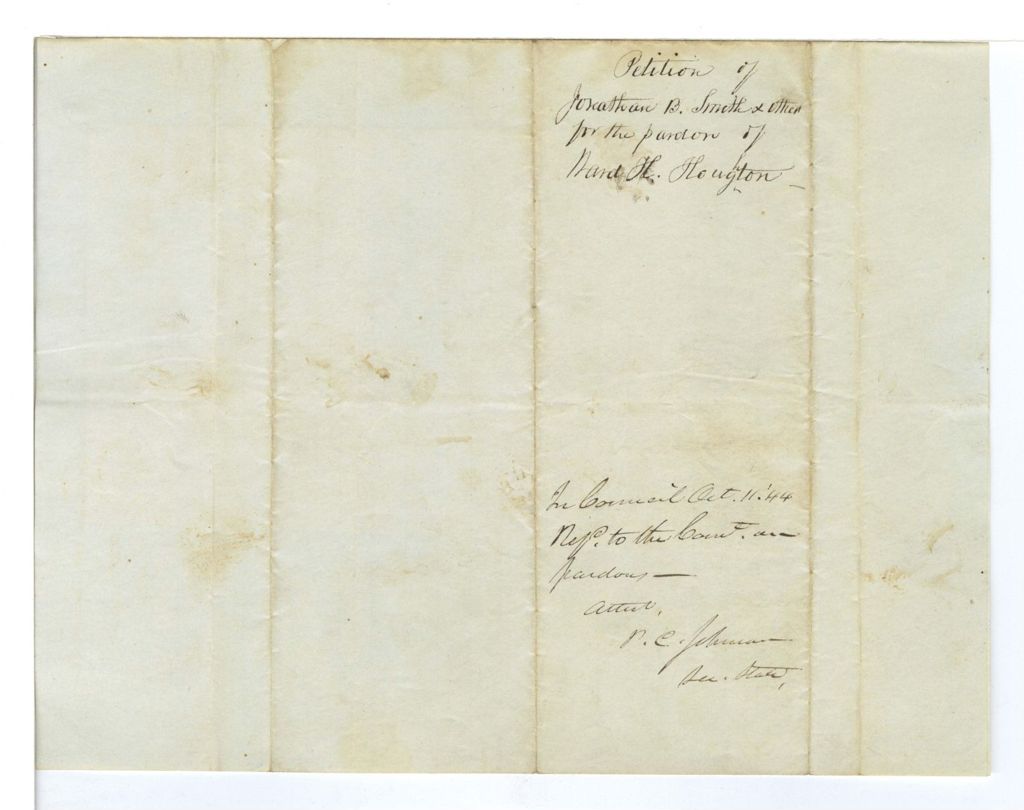 Petition of
Jonathan B. Smith & others
for the pardon of
Ward H. Hougton
In Council Oct. 11. '44
Refd. to the Comt. on
pardons —
Attest,
P. C. Johnson
Sec. State,